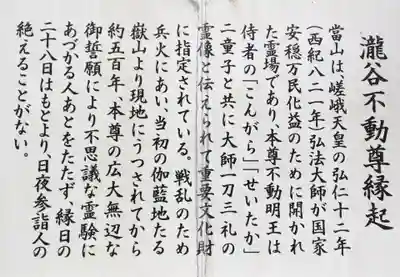 瀧谷不動尊縁起
當山は、嵯峨天皇の弘仁十二年
(西紀八二一年)弘法大師が国家
安穏万民化益のために開かれ
た霊場であり、本尊不動明王は
侍者の「こんがら」「せいたか」
二童子と共に大師一刀三礼の
霊像と伝えられて重要文化財
に指定されている。戦乱のため
兵火にあい、当初の伽藍地たる
嶽山より現地にうつされてから
約五百年、本尊の広大無辺な
御誓願により不思議な霊験に
あづかる人あとをたたず、縁日の
二十八日はもとより、日夜参詣人の
絶えることがない。